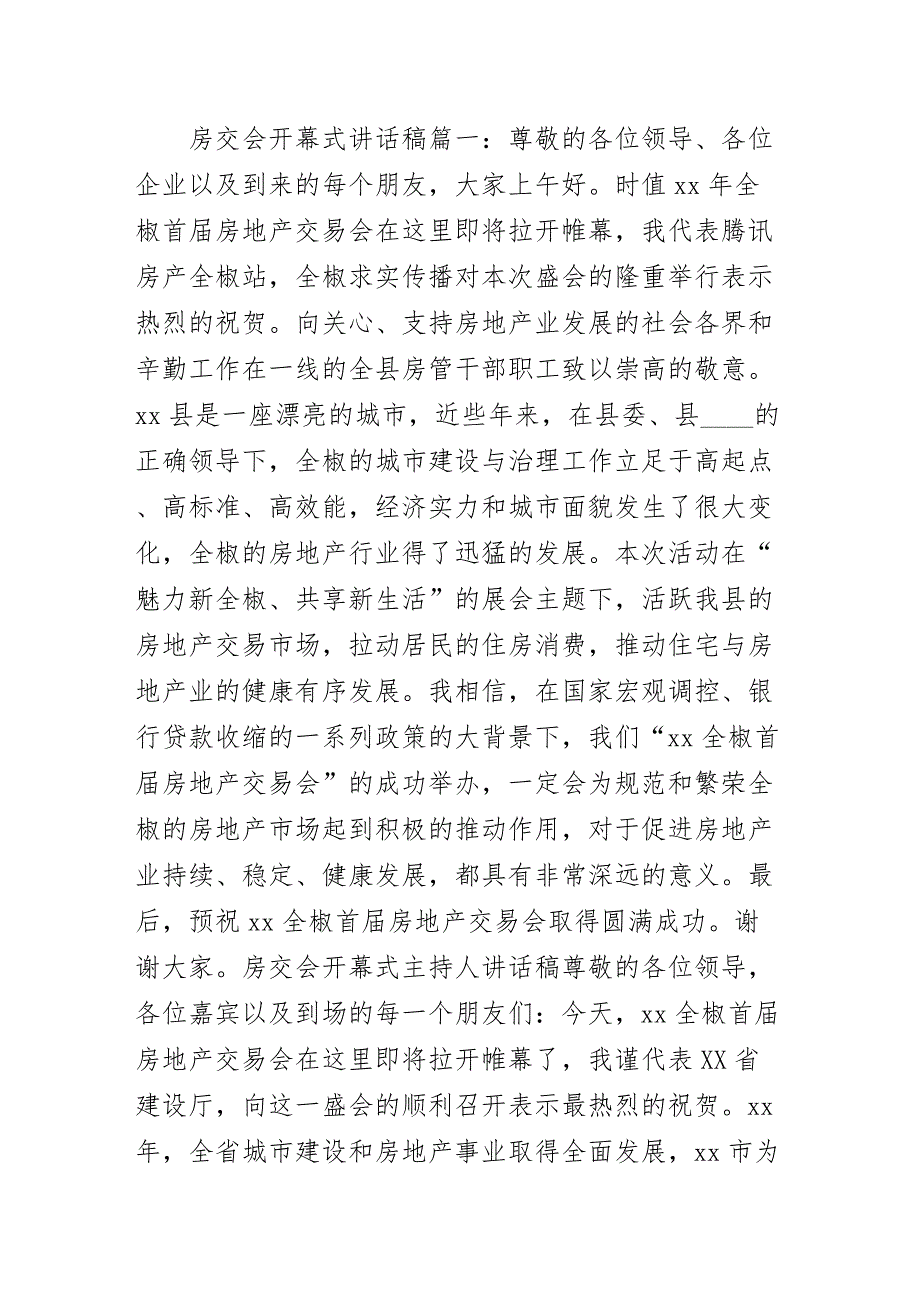 房交会开幕式讲话稿篇一：尊敬的各位领导、各位
企业以及到来的每个朋友，大家上午好。时值 xx 年全
椒首届房地产交易会在这里即将拉开帷幕，我代表腾讯
房产全椒站，全椒求实传播对本次盛会的隆重举行表示
热烈的祝贺。向关心、支持房地产业发展的社会各界和
辛勤工作在一线的全县房管干部职工致以崇高的敬意。
xx 县是一座漂亮的城市，近些年来，在县委、县____的
正确领导下，全椒的城市建设与治理工作立足于高起点
、高标准、高效能，经济实力和城市面貌发生了很大变
化，全椒的房地产行业得了迅猛的发展。本次活动在“
魅力新全椒、共享新生活”的展会主题下，活跃我县的
房地产交易市场，拉动居民的住房消费，推动住宅与房
地产业的健康有序发展。我相信，在国家宏观调控、银
行贷款收缩的一系列政策的大背景下，我们“xx 全椒首
届房地产交易会”的成功举办，一定会为规范和繁荣全
椒的房地产市场起到积极的推动作用，对于促进房地产
业持续、稳定、健康发展，都具有非常深远的意义。最
后，预祝 xx 全椒首届房地产交易会取得圆满成功。谢
谢大家。房交会开幕式主持人讲话稿尊敬的各位领导，
各位嘉宾以及到场的每一个朋友们：今天，xx 全椒首届
房地产交易会在这里即将拉开帷幕了，我谨代表 XX 省
建设厅，向这一盛会的顺利召开表示最热烈的祝贺。xx
年，全省城市建设和房地产事业取得全面发展，xx 市为